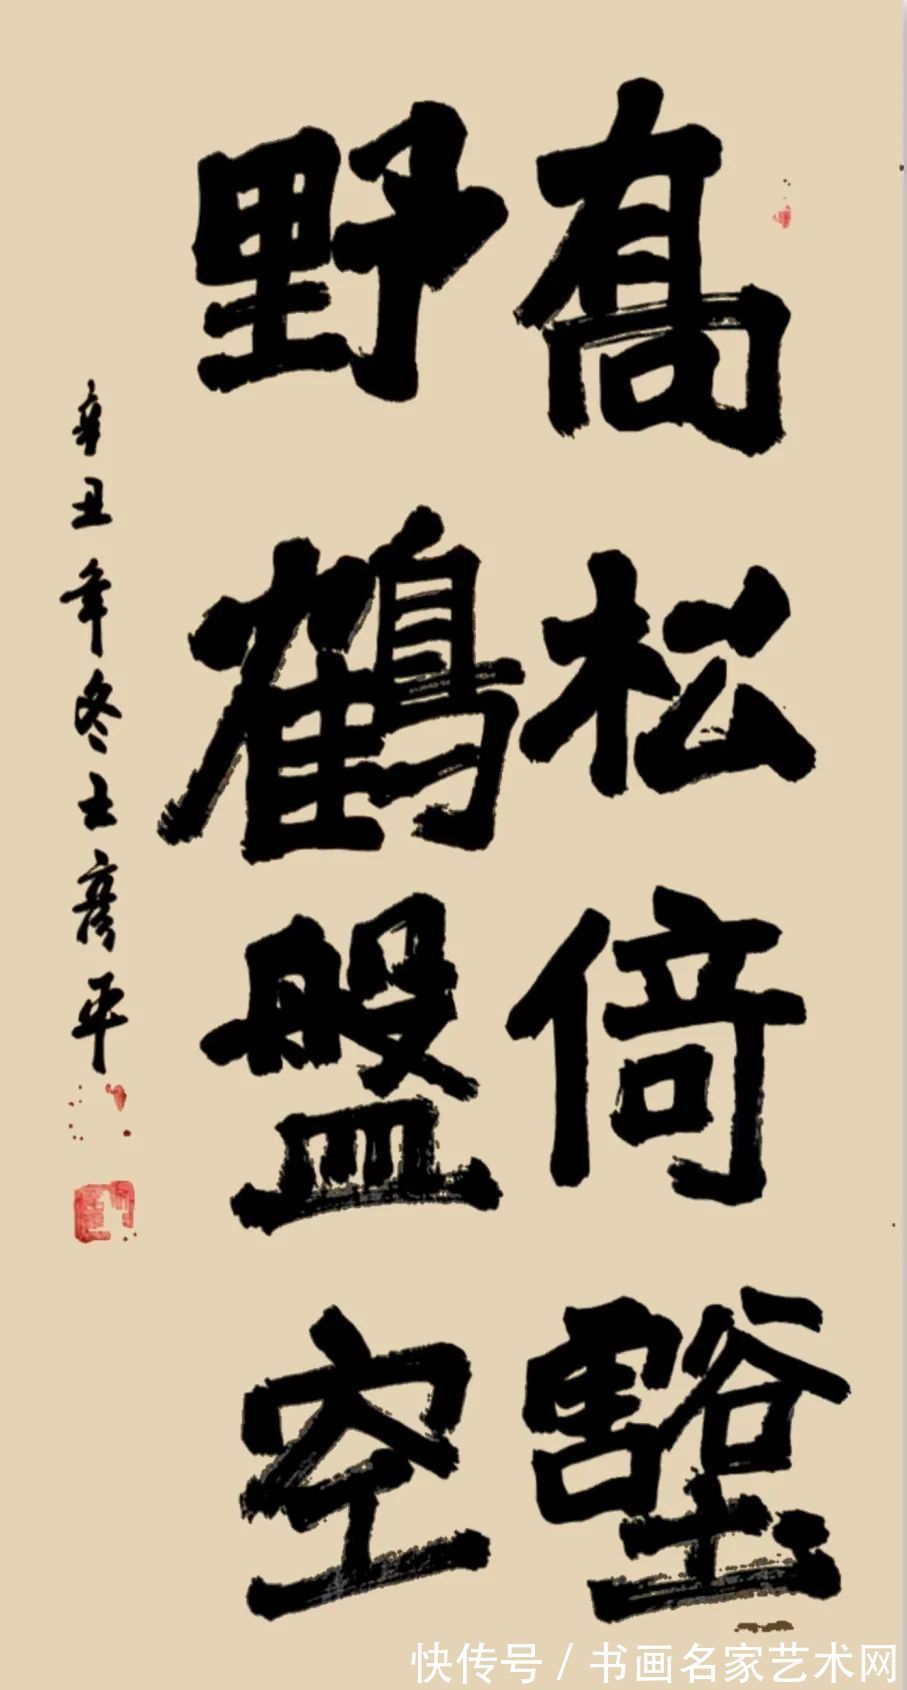 髙松倚壑
野鶴盤空
辛丑年冬 彦平
快传号 / 书画名家艺术网